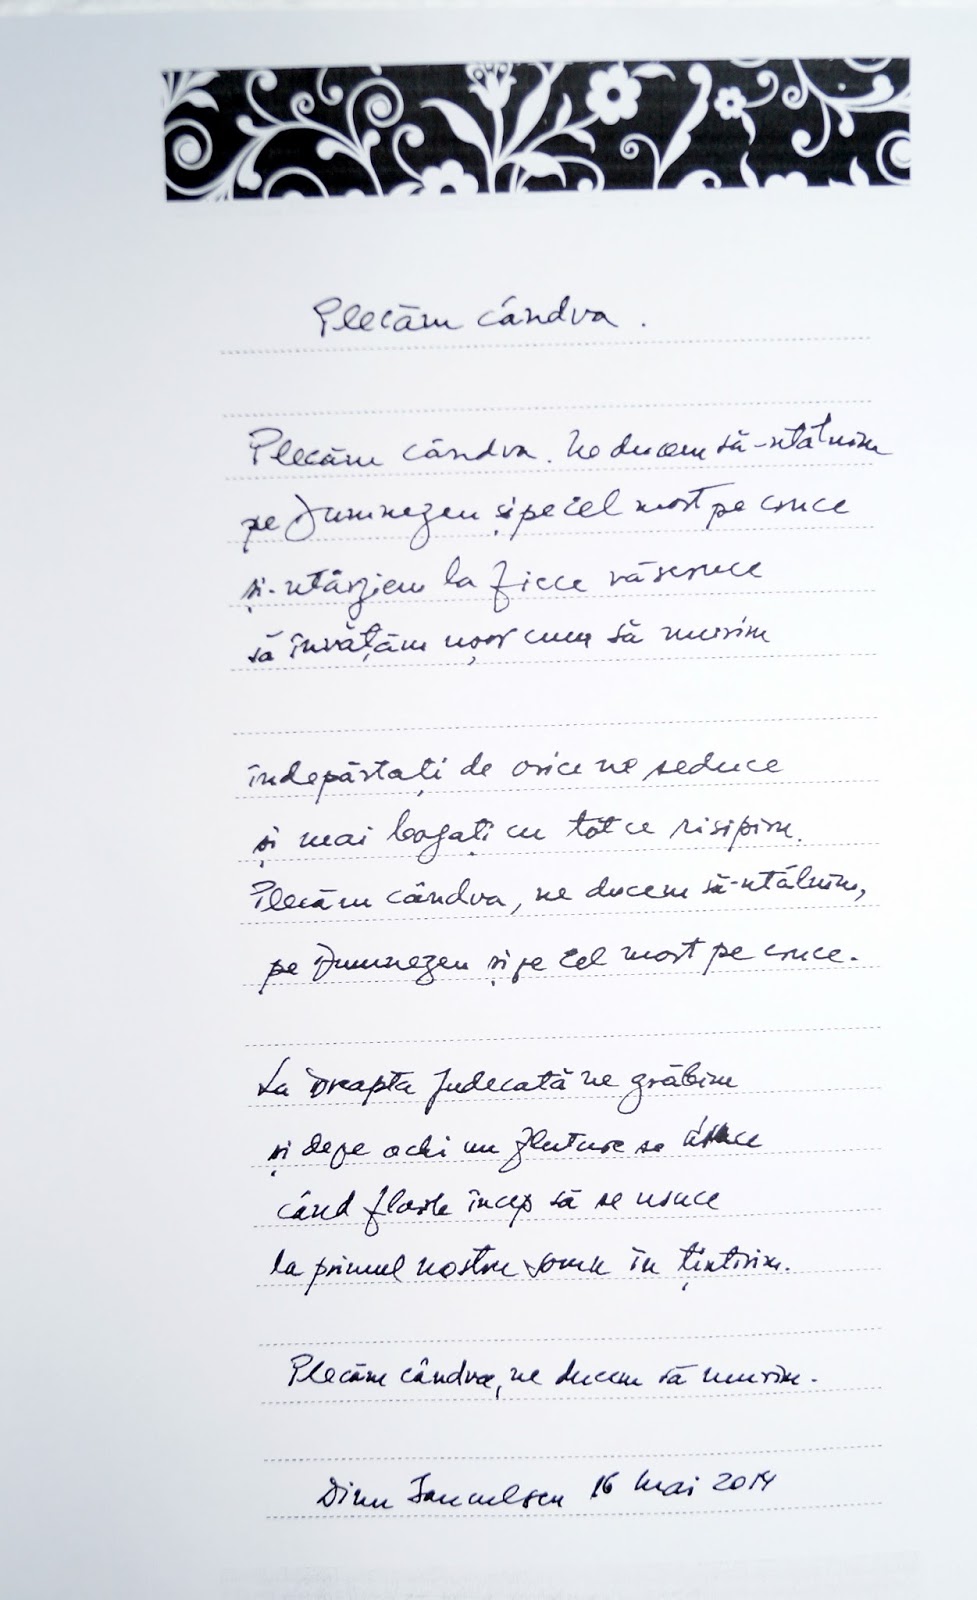 Plecăm cândva.
Plecăm cândva. Ne ducem să-ntâlnim
pe Dumnezeu și pe cel mort pe cruce
și-ntârziem la fiece răscruce
să învățăm ușor cum să murim
îndepărtați de orice ne seduce
și mai bogați cu tot ce risipim.
Plecăm cândva, ne ducem să-ntâlnim,
pe Dumnezeu și pe Cel mort pe cruce.
La Dreapta Judecată ne grăbim
și de pe ochi un fluture se
când florile încep să se usuce
la primul nostru somn în țintirim.
Plecăm cândva, ne ducem să murim.
Dinu 16 mai 2014